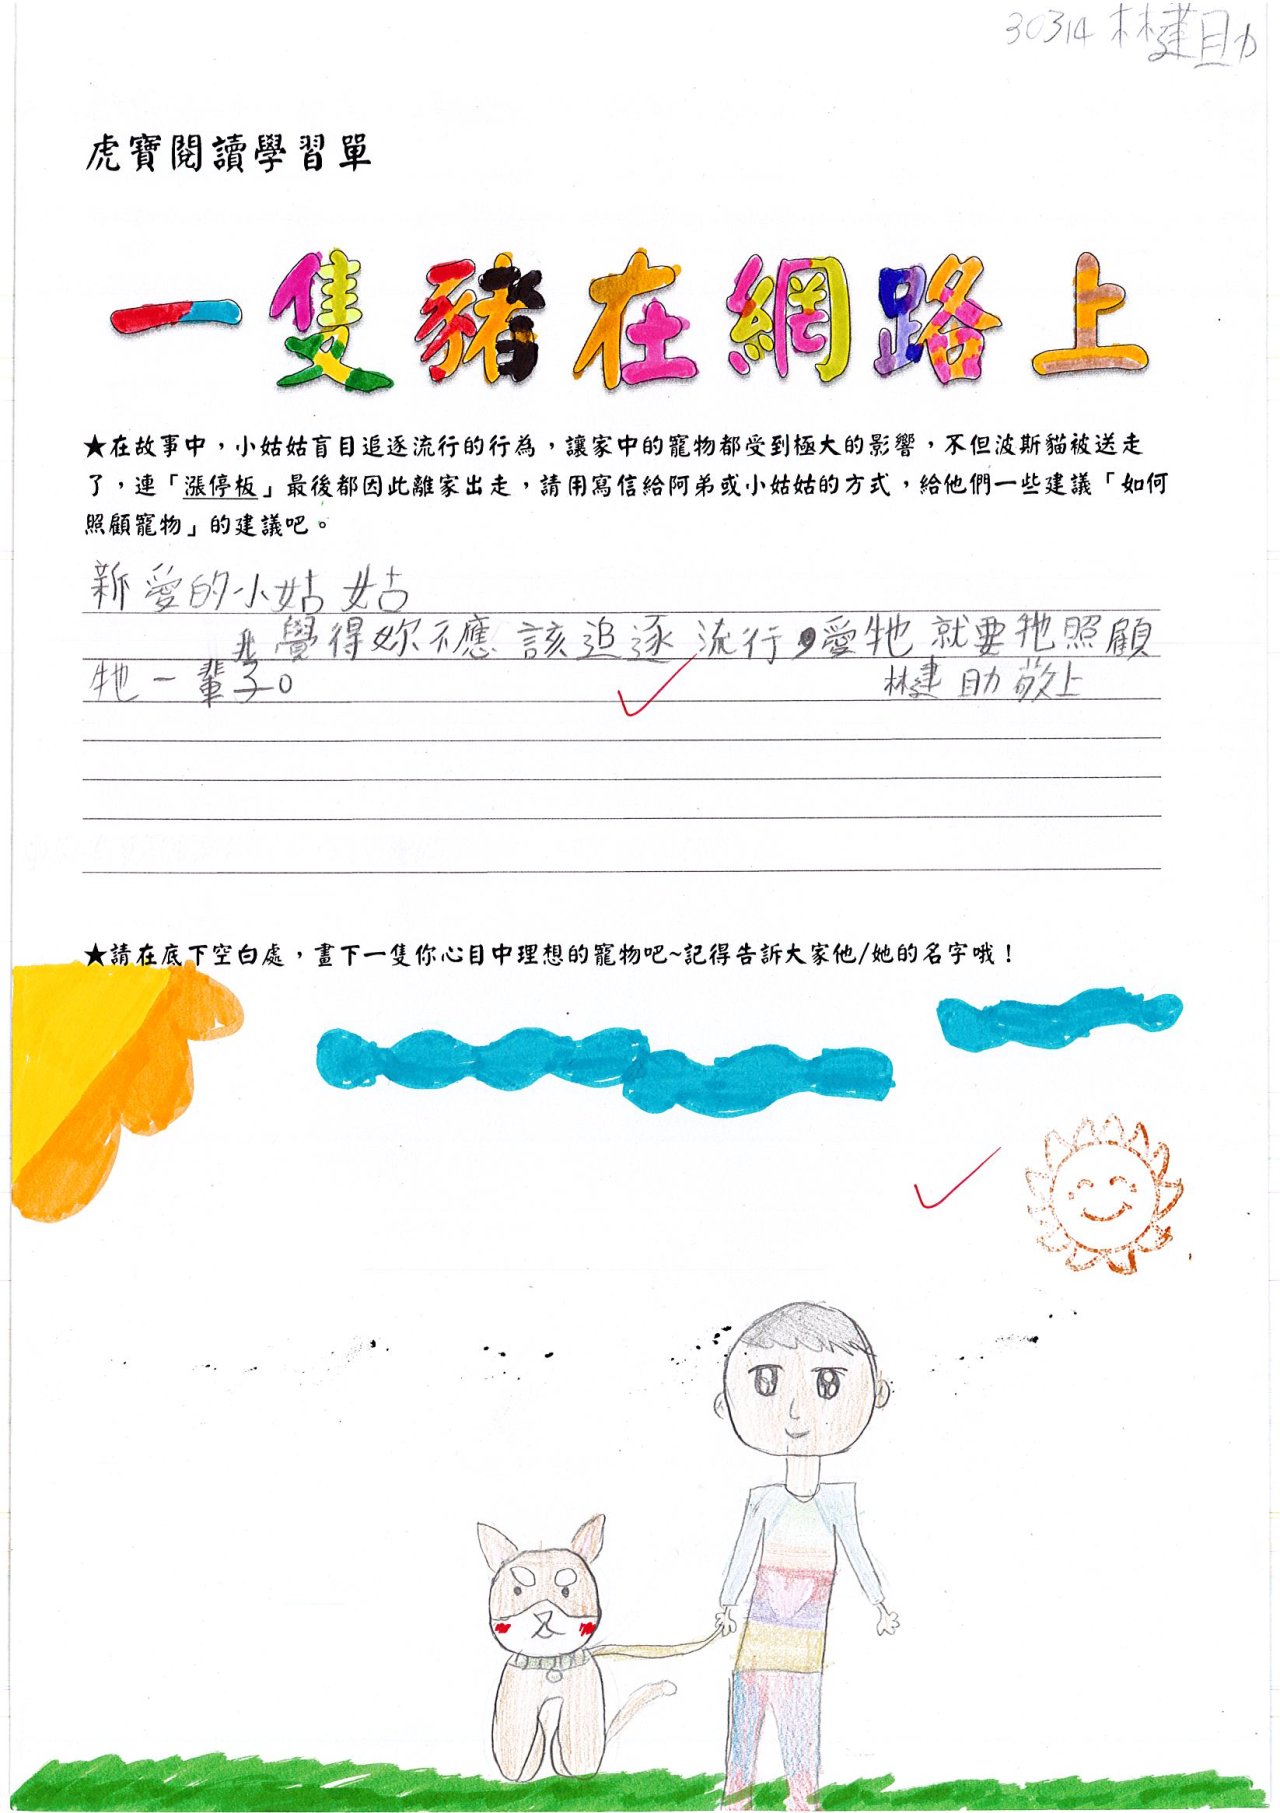 30314 林建助
虎寶閱讀學習單
一隻豬在網路上
★在故事中，小姑姑盲目追逐流行的行為，讓家中的寵物都受到極大的影響，不但波斯貓被送走
了，連「漲停板」最後都因此離家出走，請用寫信給阿弟或小姑姑的方式，給他們一些建議「如何
照顧寵物」的建議吧。
愛的小姑姑
覺得妳不應該追逐流行，愛牠就要牠照顧
牠一輩子。 林建助敬上
★請在底下空白處，畫下一隻你心目中理想的寵物吧~記得告訴大家他/她的名字哦！